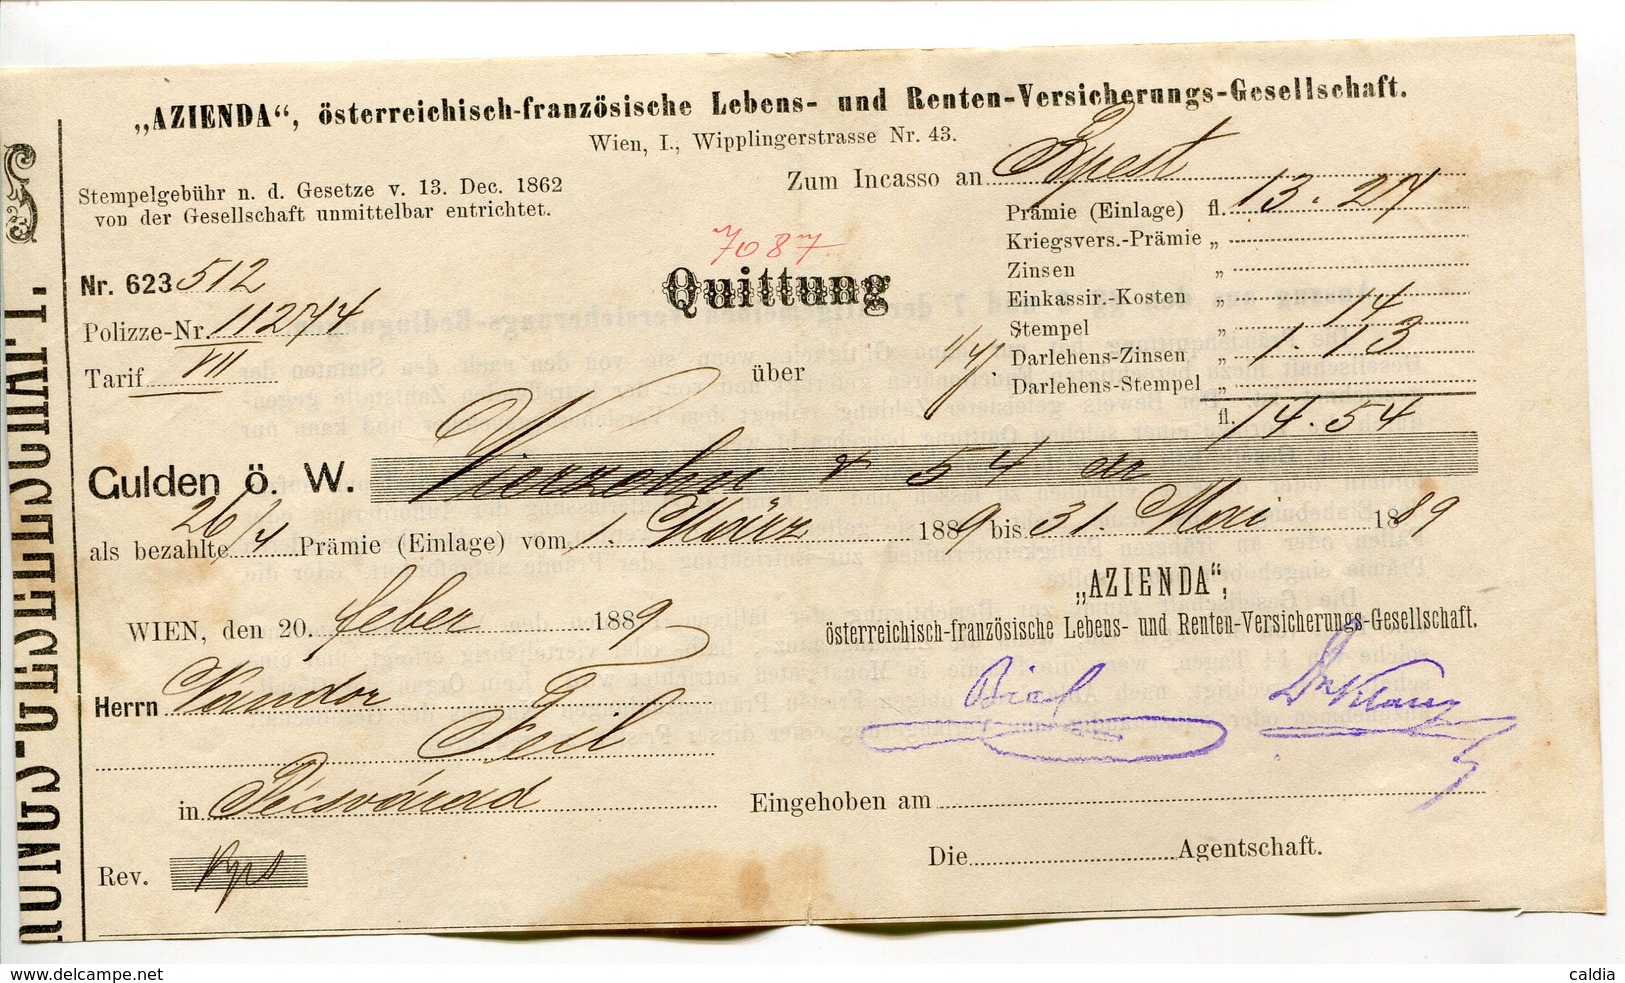 „AZIENDA“, österreichisch-französische Lebens- und Renten-Versicherungs-Gesellschaft.
Wien, I., Wipplingerstrasse Nr. 43.
Stempelgebühr n. d. Gesetze v. 13. Dec. 1862
von der Gesellschaft unmittelbar entrichtet.
Zum Incasso an Bpest
Prämie (Einlage) fl. 13.27
Kriegsvers.-Prämie „
Zinsen „
Einkassir.-Kosten „
Stempel „ 14
Darlehens-Zinsen „ 1.13
Darlehens-Stempel „
fl. 14.54
7087
Nr. 623512
Quittung
Polizze-Nr. 11274
Tarif VII
über
Gulden ö. W. Vierzehn & 54 xr
als bezahlte 26/4 Prämie (Einlage) vom 1. März 1889 bis 31. Mai 1889
WIEN, den 20. feber 1889
„AZIENDA“,
österreichisch-französische Lebens- und Renten-Versicherungs-Gesellschaft.
Herrn Nandor
Feil
in Pécsvárad
Eingehoben am
Rev.
Die Agentschaft.
RUNGS-GESELLSCHAFT.
delcampe.net
caldia